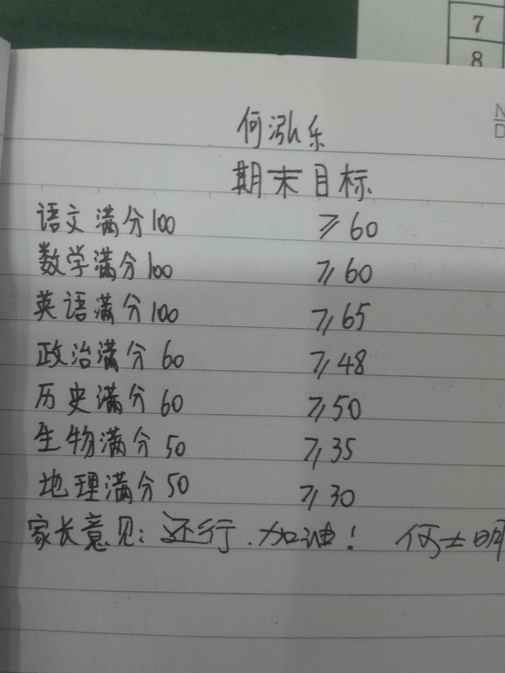 7
8
何泓乐
期末目标
语文满分100 ≥60
数学满分100 ≥60
英语满分100 ≥65
政治满分60 ≥48
历史满分60 ≥50
生物满分50 ≥35
地理满分50 ≥30
家长意见：还行.加油！ 何士明